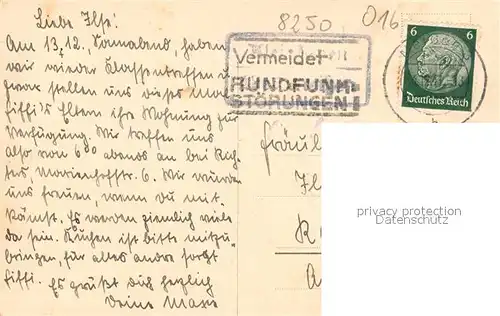 Liebe Ilse!
Am 13.12. Sonnabend, haben
wir wieder Klassentreffen u
zwar stellen uns dieses Mal
Fiffi's Eltern ihre Wohnung zur
Verfügung. Wir treffen uns
also von 6°° abends an bei
Marienhofstr. 6. Wir würden
uns freuen, wenn du mit
kämst. Es werden ziemlich viele
da sein. Kuchen ist bitte mitzu
bringen, für alles andre sorgt
Fiffi. Es grüßt dich herzlich
Deine
8250
016
Vermeidet
RUNDFUNK-
STÖRUNGEN!
6 6
Deutsches Reich
Fräul
Il
K
A
privacy protection
Datenschutz